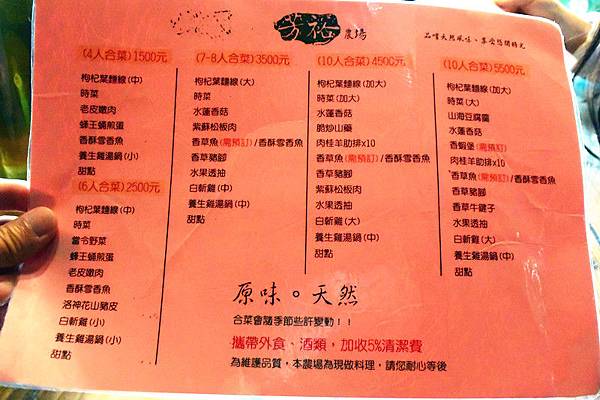 芳裕 農場
品嚐天然風味、享受悠閒時光
(4人合菜)1500元
枸杞葉麵線(中)
時菜
老皮嫩肉
蜂王蛹煎蛋
香酥雪香魚
養生雞湯鍋(小)
甜點
(6人合菜)2500元
枸杞葉麵線(中)
時菜
當令野菜
蜂王蛹煎蛋
老皮嫩肉
香酥雪香魚
洛神花山豬皮
白斬雞(小)
養生雞湯鍋(小)
甜點
(7-8人合菜)3500元
枸杞葉麵線(大)
時菜
水蓮香菇
紫蘇松板肉
香草魚(需預訂)/香酥雪香魚
香草豬腳
水果透抽
白斬雞(中)
養生雞湯鍋(中)
甜點
(10人合菜)4500元
枸杞葉麵線(加大)
時菜(加大)
水蓮香菇
脆炒山藥
肉桂羊肋排x10
香草魚(需預訂)/香酥雪香魚
香草豬腳
紫蘇松板肉
水果透抽
白斬雞(大)
養生雞湯鍋(中)
甜點
(10人合菜)5500元
枸杞葉麵線(加大)
時菜(大)
山海豆腐羹
水蓮香菇
香蝦堡(需預訂)
肉桂羊肋排x10
*香草魚(需預訂)/香酥雪香魚
香草豬腳
香草牛腱子
水果透抽
白斬雞(大)
養生雞湯鍋(中)
甜點
原味。天然
合菜會隨季節些許變動！！
攜帶外食、酒類，加收5%清潔費
為維護品質，本農場為現做料理，請您耐心等後